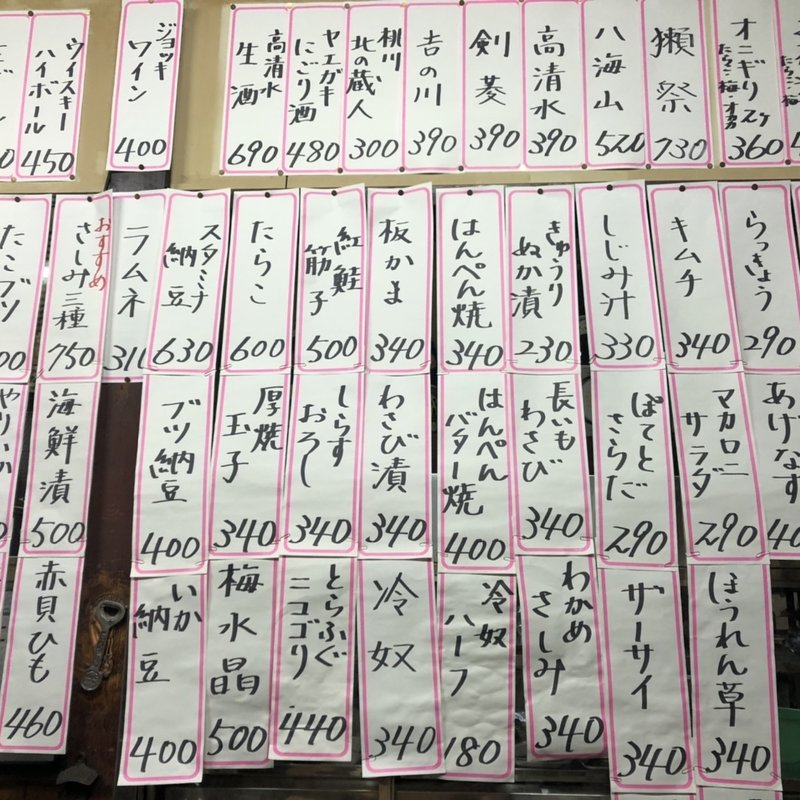 ウイスキー
ハイボール
450
ジョッキ
ワイン
400
高清水
生酒
690
ヤエガキ
にごり酒
480
桃川
北の蔵人
300
吉の川
390
剣菱
390
高清水
390
八海山
520
獺祭
730
オニギリ
たらこ・梅・オカカ
360
たこブツ
おすすめ
さしみ三種
750
ラムネ
310
スタミナ
納豆
630
たらこ
600
紅鮭
筋子
500
板かま
340
はんぺん焼
340
きゅうり
ぬか漬
230
しじみ汁
330
キムチ
340
らっきょう
290
やりいか
海鮮漬
500
ブツ納豆
400
厚焼
玉子
340
しらす
おろし
340
わさび漬
340
はんぺん
バター焼
400
長いも
わさび
340
ぽてと
さらだ
290
マカロニ
サラダ
290
あげなす
赤貝ひも
460
いか
納豆
400
梅水晶
500
とらふぐ
ニコゴリ
440
冷奴
340
冷奴
ハーフ
180
わかめ
さしみ
340
ザーサイ
340
ほうれん草
340